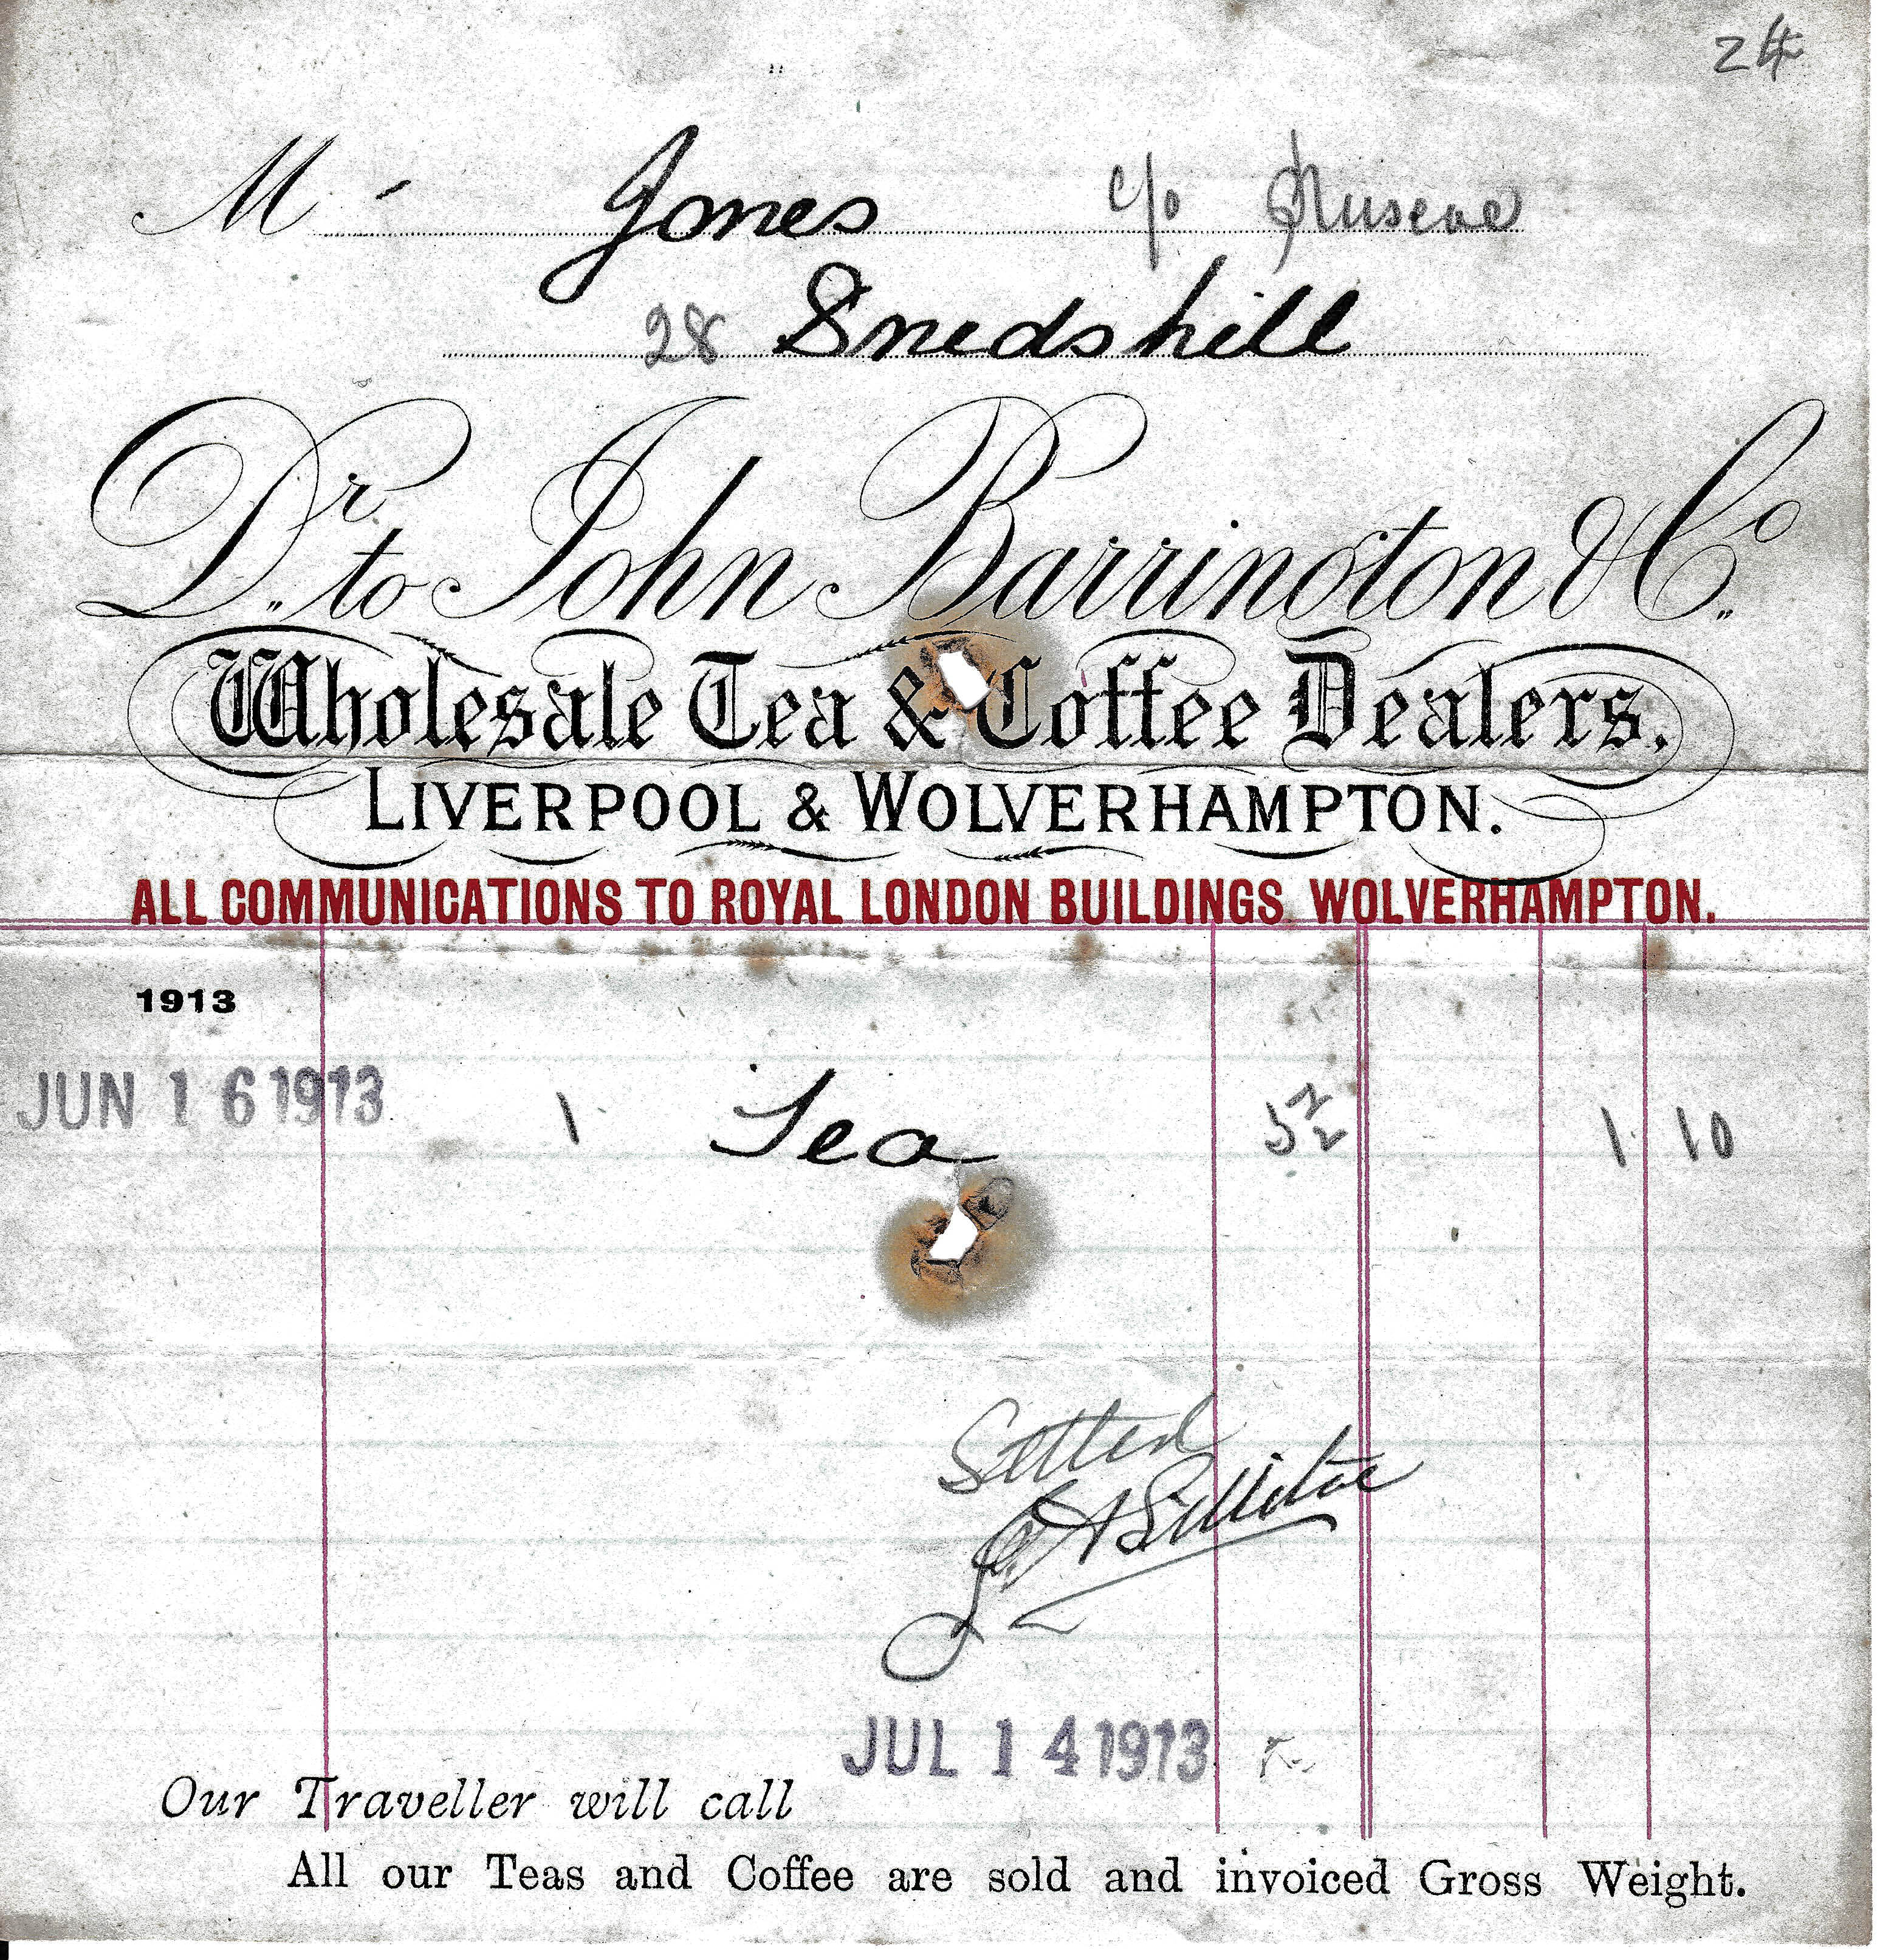 24
M - Jones c/o Ruscoe
28 Snedshill
Dr. to John Barrington & Co.
Wholesale Tea & Coffee Dealers.
LIVERPOOL & WOLVERHAMPTON.
ALL COMMUNICATIONS TO ROYAL LONDON BUILDINGS, WOLVERHAMPTON.
1913
JUN 16 1913 1 Tea 1 10
Settled
JUL 14 1913
Our Traveller will call
All our Teas and Coffee are sold and invoiced Gross Weight.